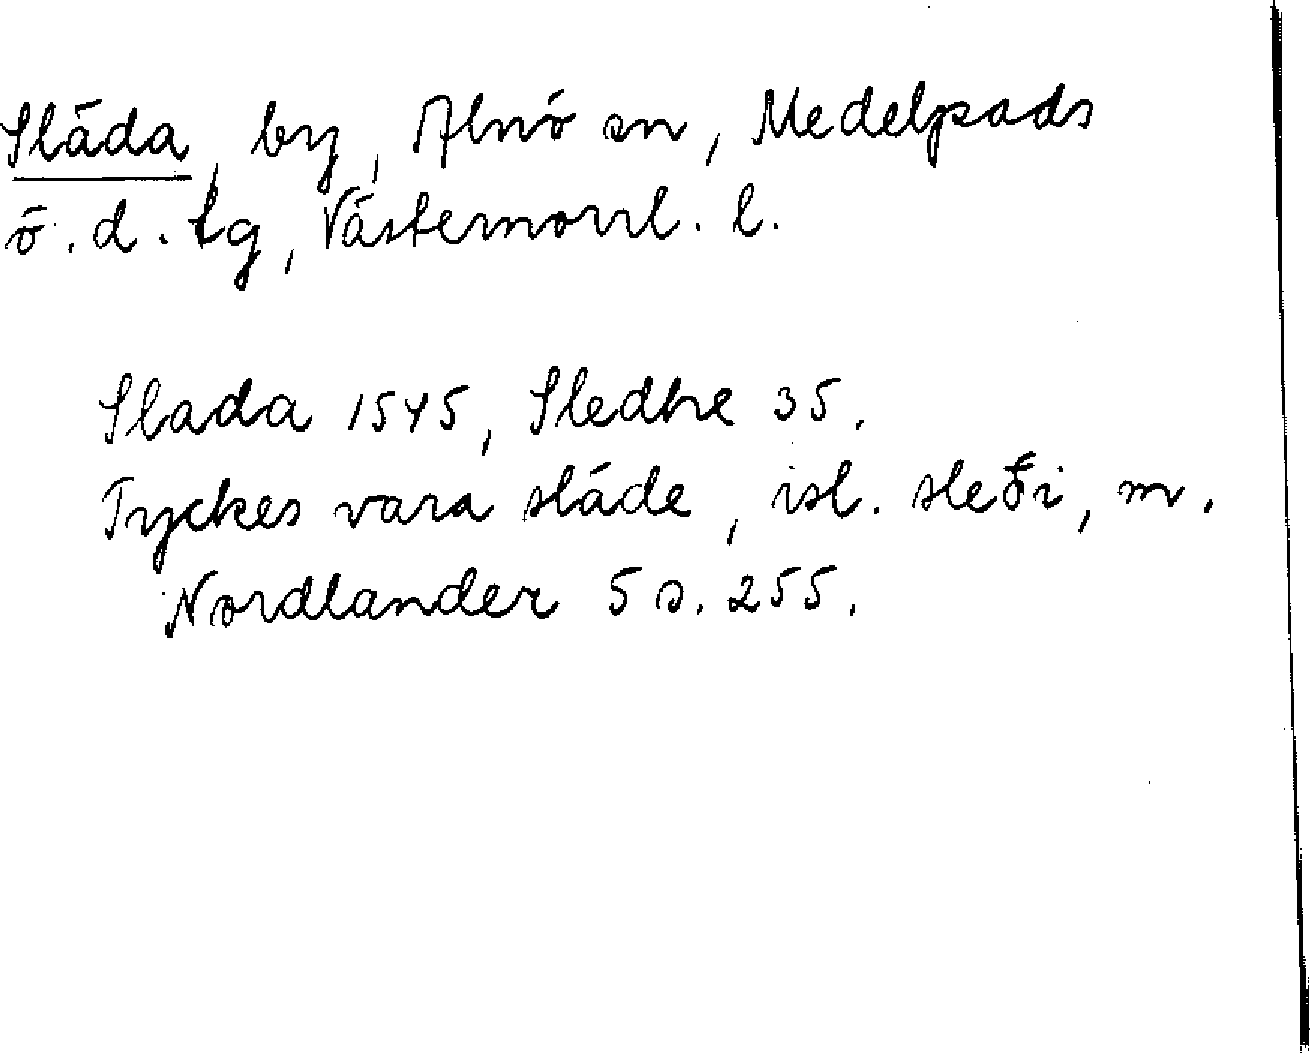 Släda, by, Alnö sn, Medelpads
ö. d. tg, Västernorrl. l.
Slada 1545, Sledhe 35.
Tyckes vara släde, isl. sleði, m.
Nordlander 5 s. 255.